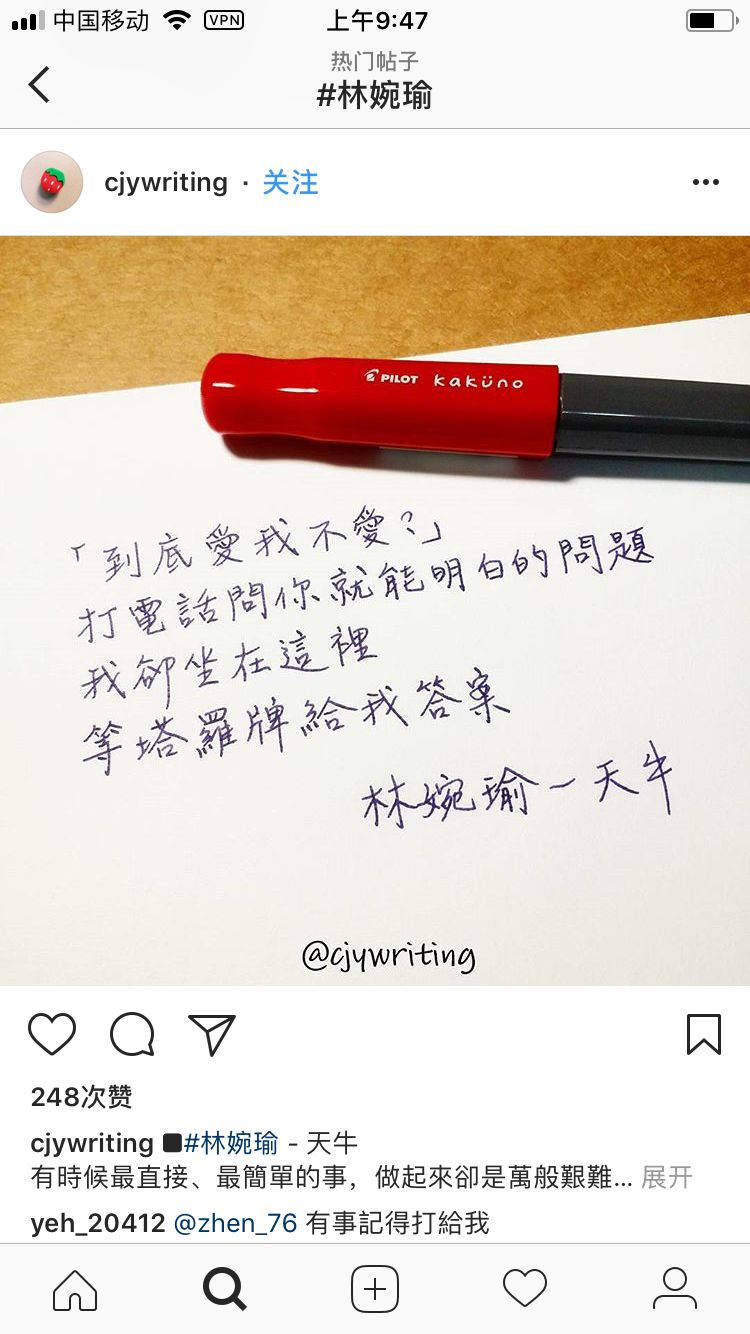 中国移动 VPN 上午9:47
热门帖子
#林婉瑜
cjywriting · 关注
PILOT kaküno
「到底愛我不愛？」
打電話問你就能明白的問題
我卻坐在這裡
等塔羅牌給我答案
林婉瑜－天牛
@cjywriting
248次赞
cjywriting ■#林婉瑜 - 天牛
有時候最直接、最簡單的事，做起來卻是萬般艱難... 展开
yeh_20412 @zhen_76 有事記得打給我